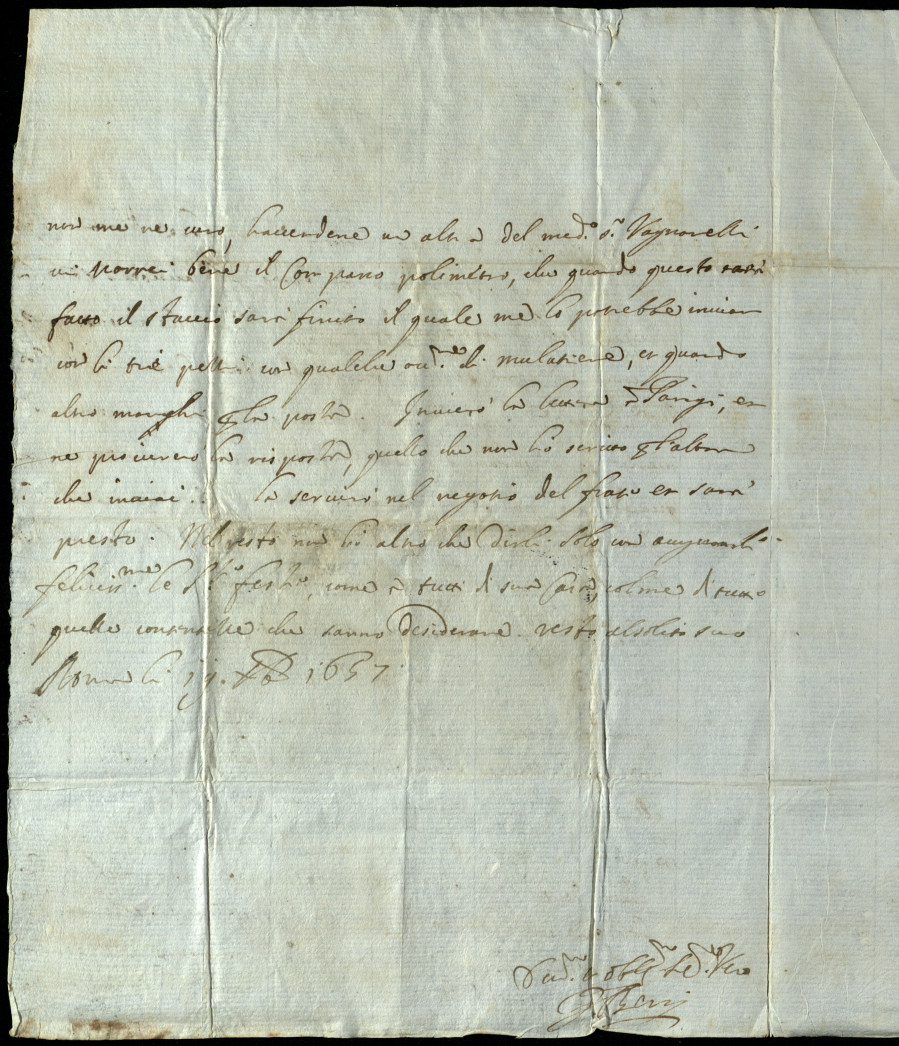 non me ne curo, havendene un altro del med.o S.r Vagnarelli
vi vorrei bene il Compasso polimetro, che quando questo sarà
fatto il staccio sarà finito il quale me lo potrebbe inviar
con li trè pelli con qualche di mulatiere, et quando
altro manghi p la posta. Invierò la lettera à Parigi, et
ne procurerò la risposta, quello che non hò scritto p l'altra
che inviai. la servirò nel negotio del frate et sarà
presto. Nel resto non hò altro che dirli Solo con augurarli
feliciss.me le S.te feste, come à tutti di sua Casa, colme di tutte
quelle che sanno desiderare. resto al solito suo
Roma li Xbre 1657.
et obblig.